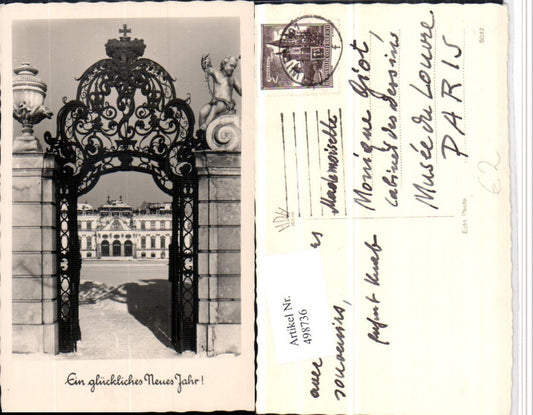 Ein glückliches Neues Jahr!
Mademoiselle
Monique Giot,
Cabinet des dessins
Musée du Louvre
PARIS
avec
souvenirs,
Artikel Nr.
498736
Echt Photo
5032
62